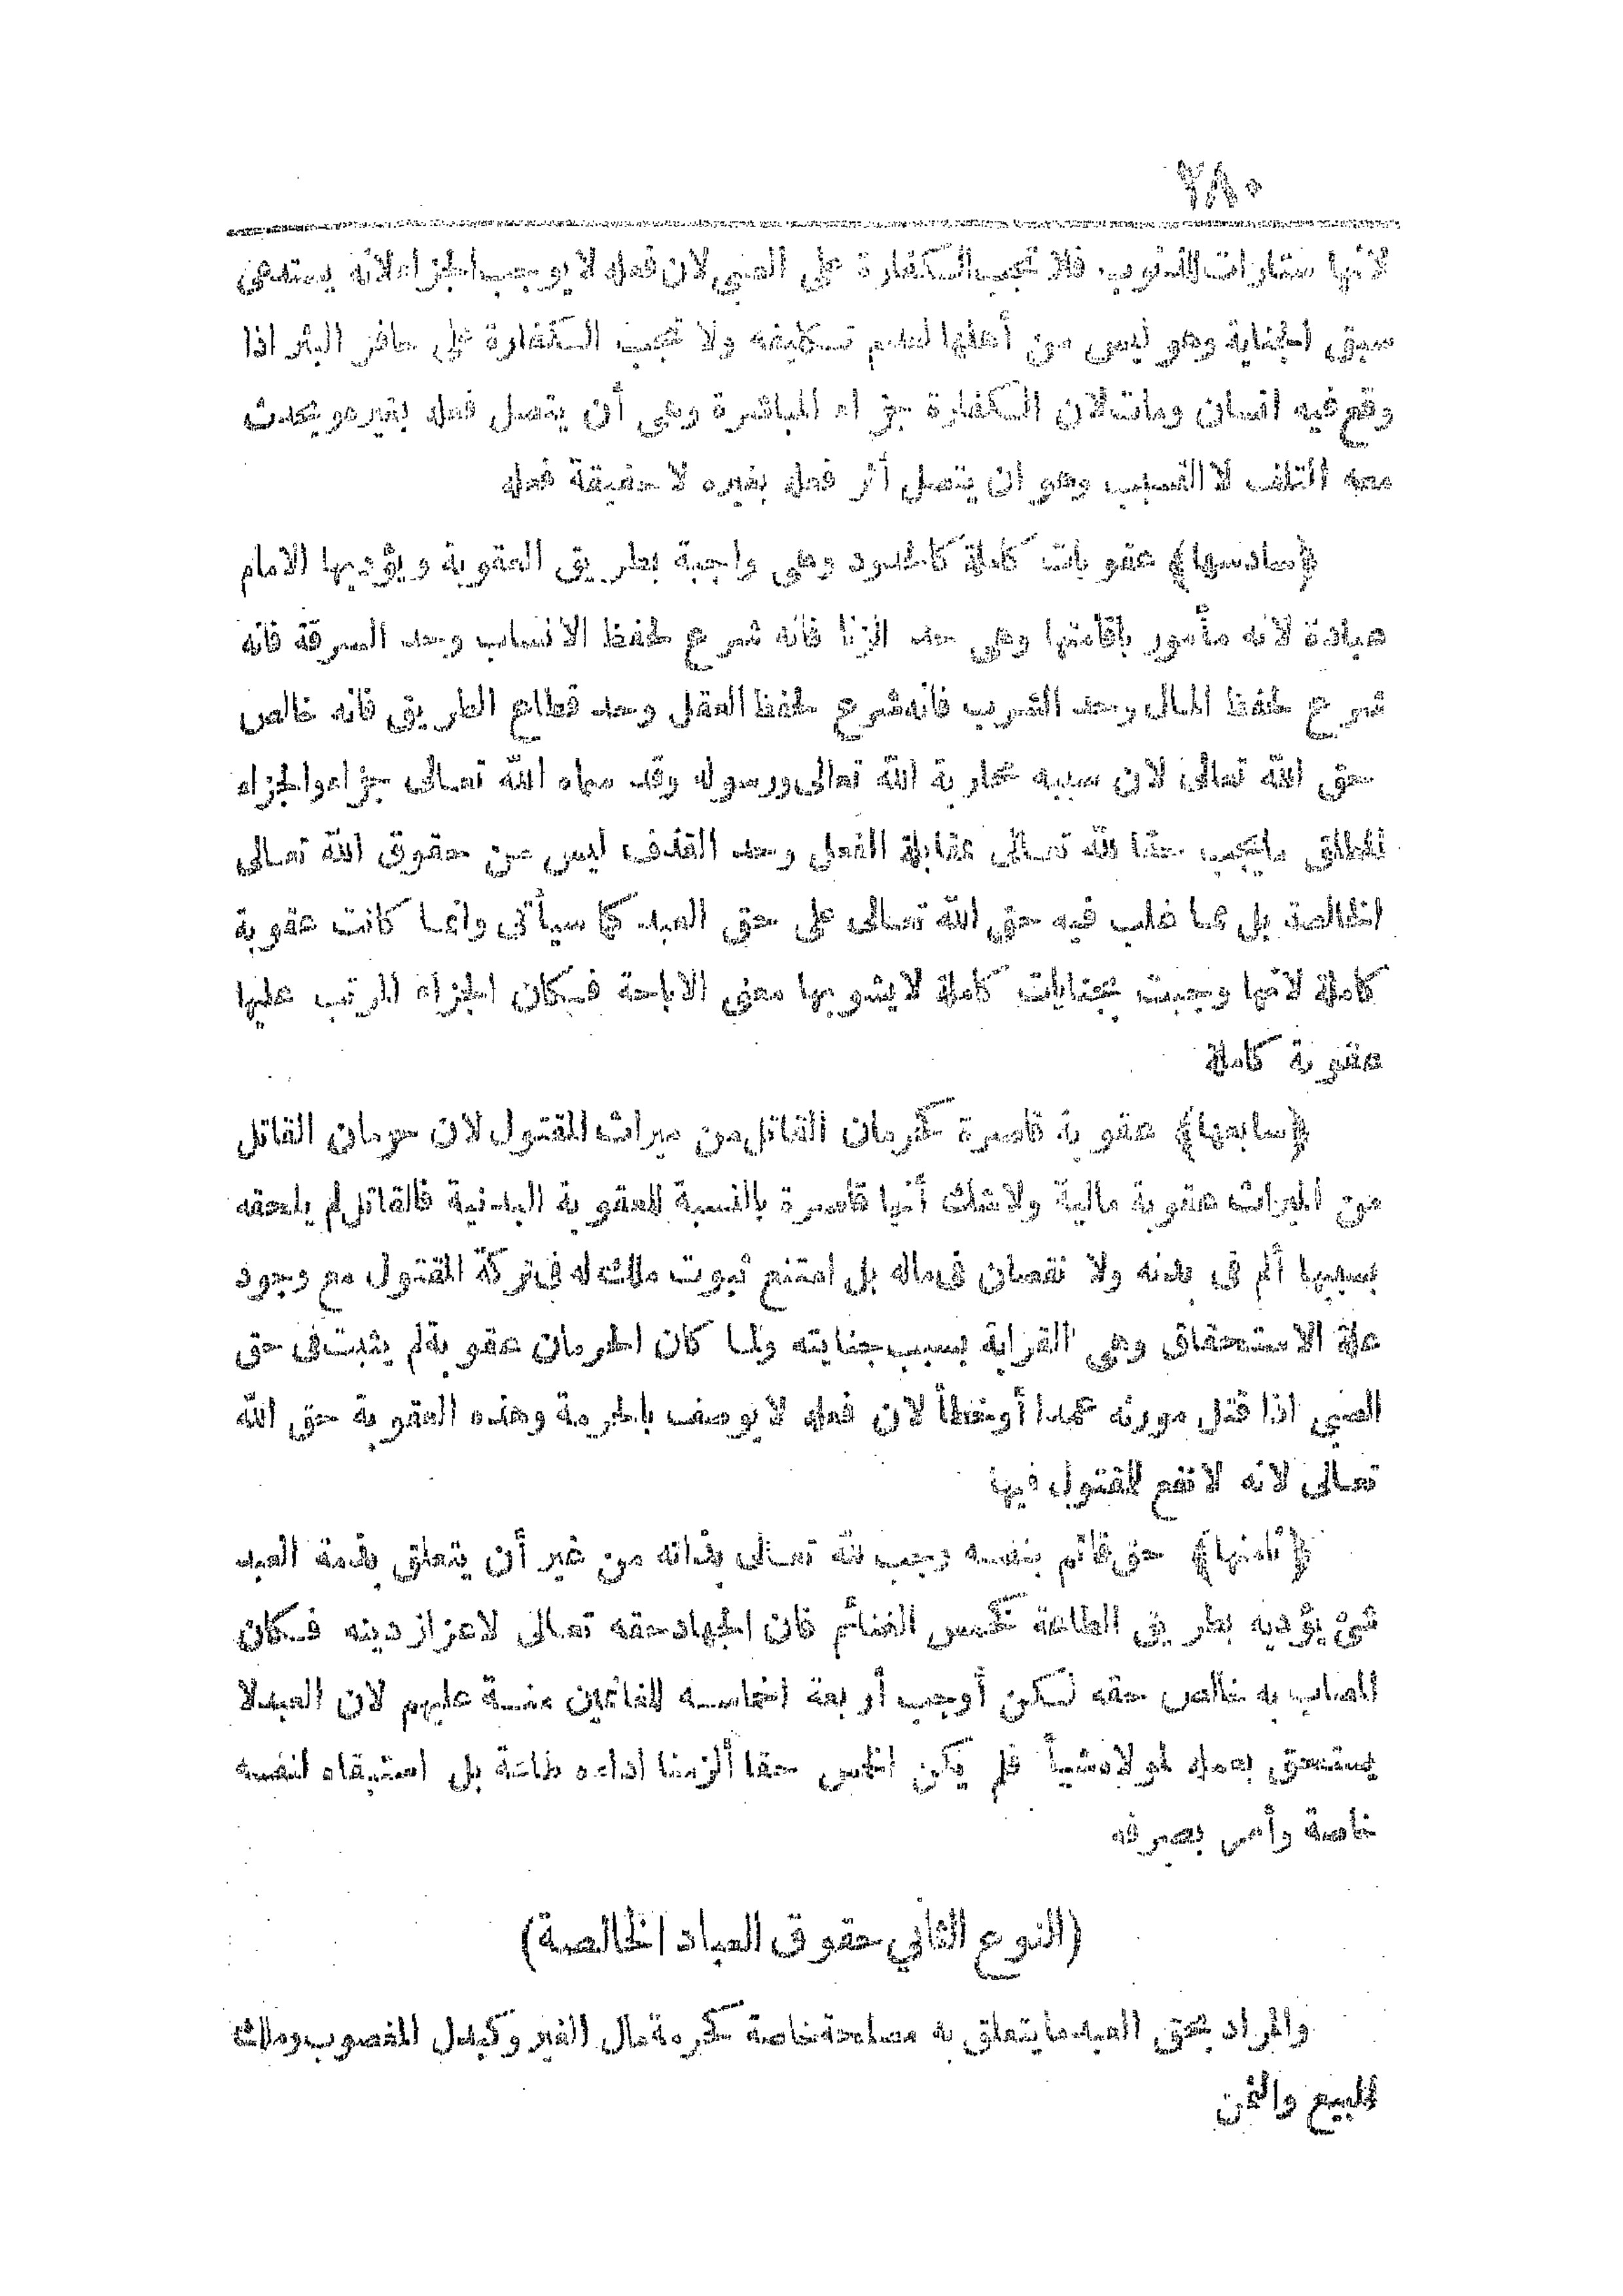 ٢٨٠
لانها ستارات للذنوب فلا تجب الكفارة على الصبى لان فعله لا يوجب الجزاء لانه يستدعى
سبق الجناية وهو ليس من أهلها لعدم تكليفه ولا تجب الكفارة على حافر البئر اذا
وقع فيه انسان ومات لان الكفارة جزاء المباشرة وهى أن يتصل فعله بغيره ويحدث
معه التلف لا التسبب وهو ان يتصل أثر فعله بغيره لا حقيقة فعله
﴿سادسها﴾ عقوبات كاملة كالحدود وهى واجبة بطريق العقوبة ويؤديها الامام
عبادة لانه مأمور باقامتها وهى حد الزنا فانه شرع لحفظ الانساب وحد السرقة فانه
شرع لحفظ المال وحد الشرب فانه شرع لحفظ العقل وحد قطاع الطريق فانه خالص
حق الله تعالى لان سببه محاربة الله تعالى ورسوله وقد سماه الله تعالى جزاء والجزاء
المطلق ما يجب حقا لله تعالى بمقابلة الفعل وحد القذف ليس من حقوق الله تعالى
الخالصة بل مما غلب فيه حق الله تعالى على حق العبد كما سيأتى وانما كانت عقوبة
كاملة لانها وجبت بجنايات كاملة لا يشوبها معنى الاباحة فكان الجزاء المرتب عليها
عقوبة كاملة
﴿سابعها﴾ عقوبة قاصرة كحرمان القاتل من ميراث المقتول لان حرمان القاتل
من الميراث عقوبة مالية ولا شك أنها قاصرة بالنسبة للعقوبة البدنية فالقاتل لم يلحقه
بسببها ألم فى بدنه ولا نقصان فى ماله بل امتنع ثبوت ملك له فى تركة المقتول مع وجود
علة الاستحقاق وهى القرابة بسبب جنايته ولما كان الحرمان عقوبة لم يثبت فى حق
الصبى اذا قتل مورثه عمدا أو خطأ لان فعله لا يوصف بالحرمة وهذه العقوبة حق الله
تعالى لانه لا نفع للمقتول فيها
﴿ثامنها﴾ حق قائم بنفسه وجب لله تعالى بذاته من غير أن يتعلق بذمة العبد
شئ يؤديه بطريق الطاعة كخمس الغنائم فان الجهاد حقه تعالى لاعزاز دينه فكان
المصاب به خالص حقه لكن أوجب أربعة اخماسه للغانمين منة عليهم لان العبد لا
يستحق بعمله لمولاه شيأ فلم يكن الخمس حقا ألزمنا اداءه طاعة بل استبقاه لنفسه
خاصة وأمر بصرفه
(النوع الثاني حقوق العباد الخالصة)
والمراد بحق العبد ما يتعلق به مصلحة خاصة كحرمة مال الغير وكبدل المغصوب وملك
المبيع والثمن